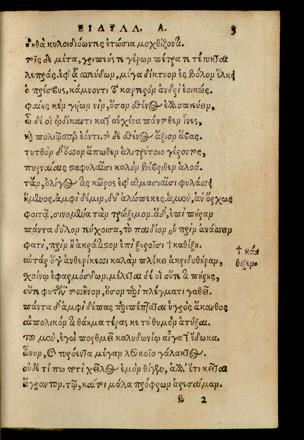 ΕΙΔΥΛΛ. Α. 3
Δηθὰ κυλοιδιόωντες ἐτώσια μοχθίζοντι.
τοῖς δὲ μέτα, γριπεύς τε γέρων πέτρα τε τέτυκται
λεπρὰς, ἐφ' ᾇ σπεύδων, μέγα δίκτυον ἐς βόλον ἕλκει
ὁ πρέσβυς, κάμνοντι τὸ καρτερὸν ἀνδρὶ ἐοικώς.
φαίης κεν γυίων νιν, ὅσον σθένος ἐλλοπιεύειν,
ὧδέ οἱ ᾠδήκαντι κατ' αὐχένα πάντοθεν ἶνες,
κὴ πολιῷπερ ἐόντι. τὸ δὲ σθένος ἄξιον ἅβας.
τυτθὸν δ' ὅσον ἄπωθεν ἁλιτρύτοιο γέροντος,
πυρναίαις σαφυλαῖσι καλὸν βέβριθεν ἀλωά.
τὰν, ὀλίγος τις κῶρος ἐφ' αἱμασιαῖσι φυλάσσει
ἥμενος. ἀμφὶ δέ μιν, δύ' ἀλώπεκες. ἁ μὲν, ἀν' ὄρχως
φοιτῇ, σινομένα τὰν τρώξιμον. ἁ δ', ἐπὶ πήραν
πάντα δόλον τεύχοισα, τὸ παιδίον οὐ πρὶν ἀνήσειν
φατὶ, πρὶν ἢ ἀκράτιστον ἐπὶ ξηροῖσι † καθίξῃ.
† καθίξειν
αὐτὰρ ὅγ' ἀνθερίκεσσι καλὰν πλέκει ἀκριδοθήραν,
σχοίνῳ ἐφαρμόσδων. μέλεται δέ οἱ οὔτέ τι πήρης,
οὔτε φυτῶν τοσῆνον, ὅσον περὶ πλέγματι γαθεῖ.
παντᾷ δ' ἀμφὶ δέπας περιπέπταται ὑγρὸς ἄκανθος
αἰπολικόν τι θάημα τέρας κέ τυ θυμὸν ἀτύξαι.
τῶ μὲν, ἐγὼ πορθμεῖ καλυδωνίῳ αἶγά τ' ἔδωκα
ὦνον, καὶ τυρόεντα μέγαν λευκοῖο γάλακτος.
οὐδέ τί πω ποτὶ χεῖλος ἐμὸν θίγεν, ἀλλ' ἔτι κεῖται
ἄχραντον. τῷ, καί τυ μάλα πρόφρων ἀρεσαίμαν.
b 2